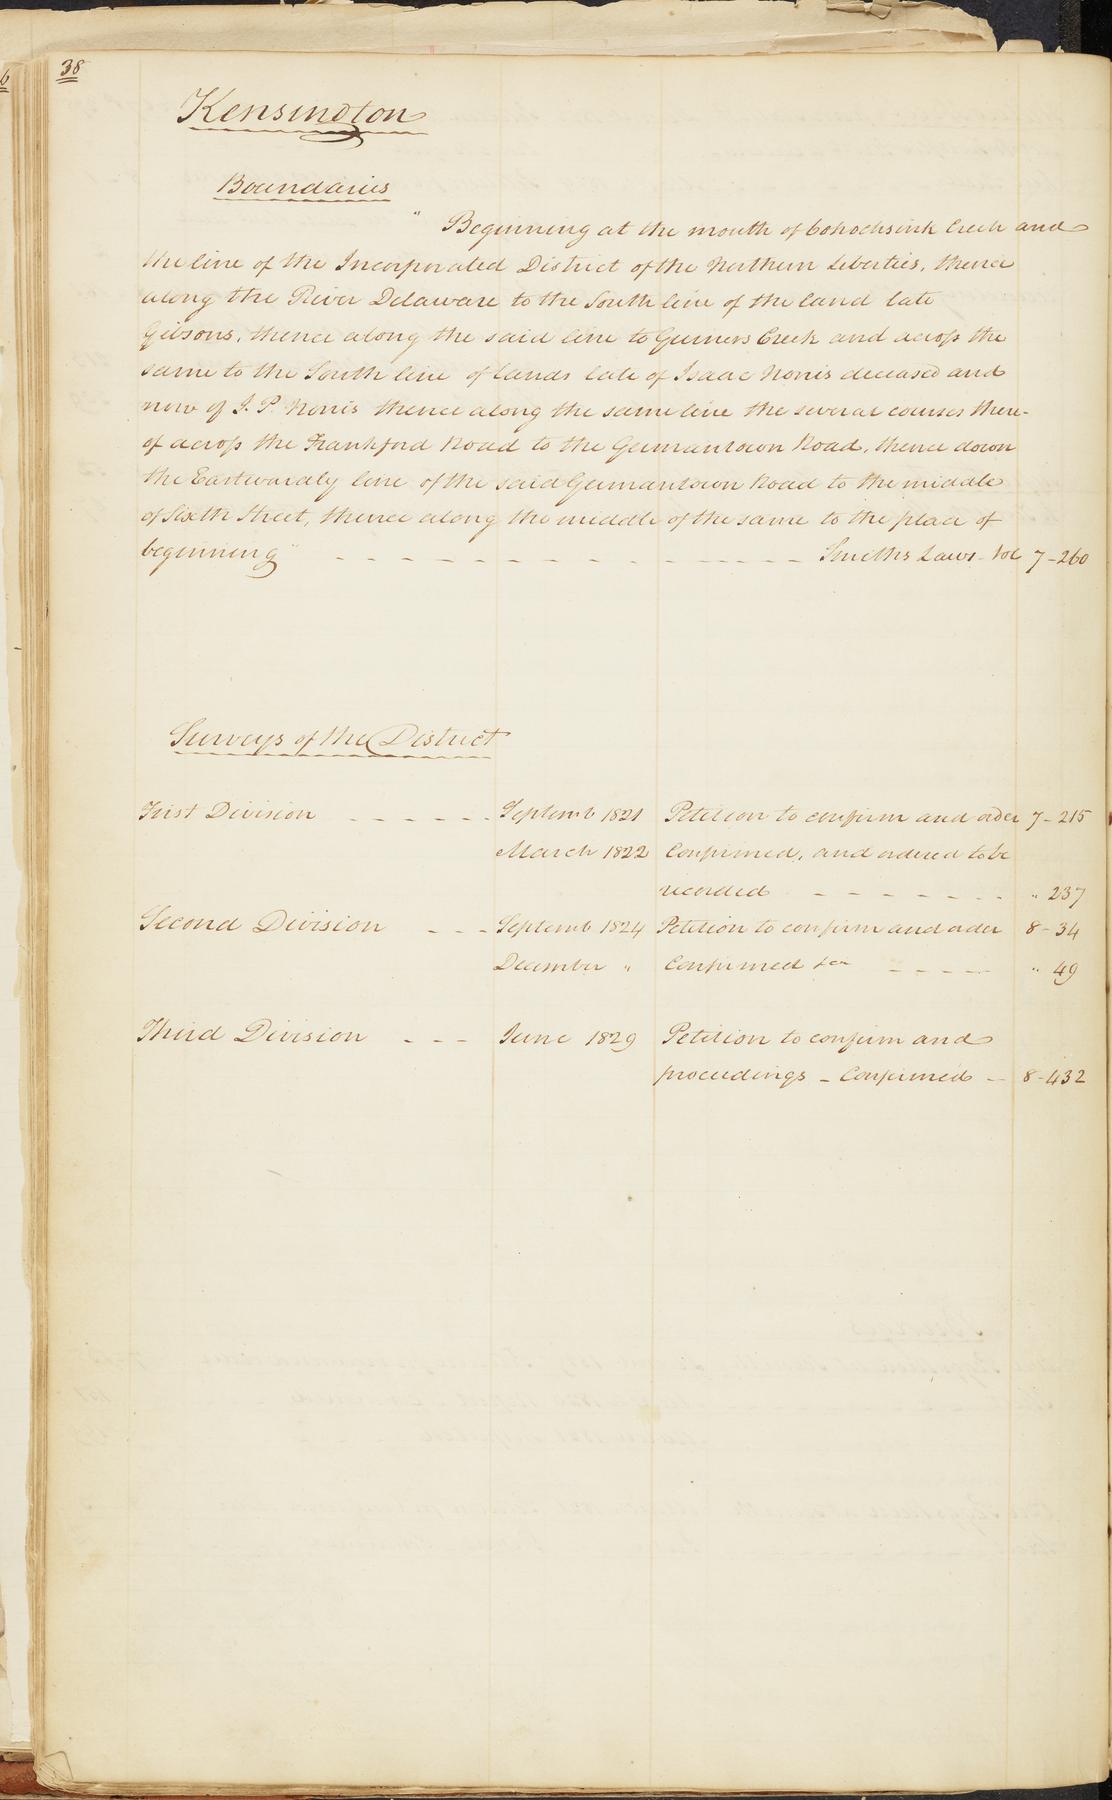 38
Kensington
Boundaries
" Beginning at the mouth of Cohocksink Creek and
the line of the Incorporated District of the Northern Liberties, thence
along the River Delaware to the South line of the land late
Gibsons, thence along the said line to Gunners Creek and across the
same to the South line of lands late of Isaac Norris deceased and
now of J. P. Norris thence along the same line the several courses there-
of across the Frankford Road to the Germantown Road, thence down
the Eastwardly line of the said Germantown Road to the middle
of Sixth Street, thence along the middle of the same to the place of
beginning" - - - - - - - - - - - - - - Smiths Laws - Vol 7-260
Surveys of the District
First Division - - - - - - Septemb 1821 Petition to confirm and order 7-215
March 1822 Confirmed, and ordered to be
recorded - - - - - - - " 237
Second Division - - - Septemb 1824 Petition to confirm and order 8-34
December " Confirmed &c - - - - - " 49
Third Division - - - June 1829 Petition to confirm and
proceedings - Confirmed - 8-432